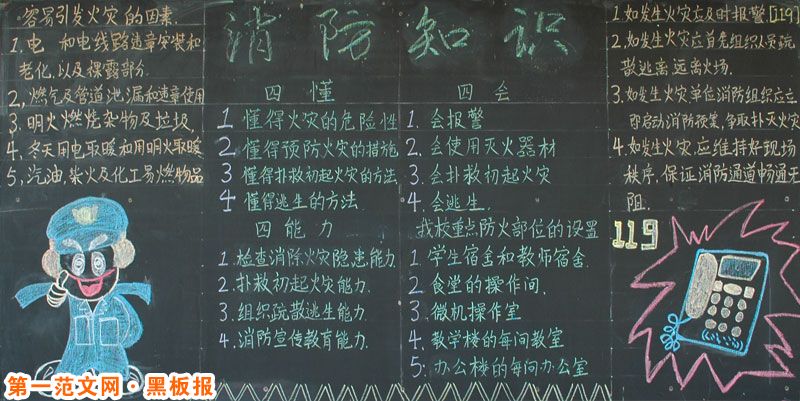 消防知识
容易引发火灾的因素.
1.电 和电线路违章安装和
老化.以及裸露部分.
2,燃气及管道泄漏和违章使用
3.明火燃烧杂物及垃圾,
4.冬天用电取暖和用明火取暖
5,汽油,柴火及化工易燃物品
四懂
1 懂得火灾的危险性
2 懂得预防火灾的措施
3 懂得扑救初起火灾的方法
4 懂得逃生的方法
四能力
1.检查消除火灾隐患能力
2.扑救初起火灾能力.
3.组织疏散逃生能力.
4.消防宣传教育能力.
四会
1.会报警
2.会使用灭火器材
3.会扑救初起火灾
4.会逃生.
我校重点防火部位的设置
1.学生宿舍和教师宿舍.
2.食堂的操作间.
3.微机操作室
4.教学楼的每间教室
5.办公楼的每间办公室
1.如发生火灾应及时报警[119]
2.如发生火灾应首先组织人员疏
散逃离远离火场.
3.如发生火灾单位消防组织应立
即启动消防预案,争取扑灭火灾
4.如发生火灾,应维持好现场
秩序,保证消防通道畅通无
阻.
119
第一范文网·黑板报